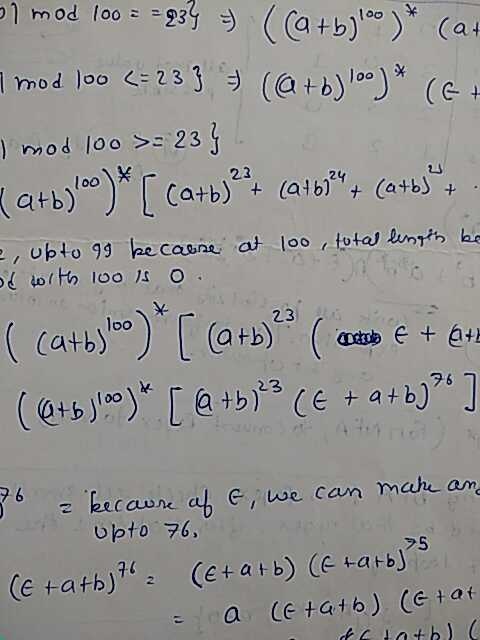 | mod 100 = = 23} ⇒ ((a+b)^100)^* (a+
| mod 100 <= 23 } ⇒ ((a+b)^100)^* (ε +
| mod 100 >= 23 }
(a+b)^100)^* [ (a+b)^23 + (a+b)^24 + (a+b)^25 + .
, upto 99 because at 100, total length be
with 100 is 0.
( (a+b)^100 )^* [ (a+b)^23 ( ε + (a+b
( (a+b)^100 )^* [ (a+b)^23 (ε + a+b)^76 ]
^76 = because of ε, we can make an
upto 76.
(ε+a+b)^76 = (ε+a+b) (ε+a+b)^75
= a (ε+a+b) (ε+a+
(ε+a+b) (